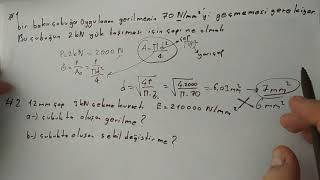 #1
bir bakır çubuğa uygulanan gerilmenin 70 N/mm²'yi geçmemesi gerekiyor
Bu çubuğun 2kN yük taşıması için çapı ne olmalı
P=2kN=2000 N
A = πd²/4
çap
yarıçap
σ = P/A₀ = P/(πd²/4)
d = √(4P/π.σ) = √(4.2000/π.70) = 6,03mm → 7mm
6mm
#2 12mm çap 3kN çekme kuvveti E=210000 N/mm²
a-) çubukta oluşan gerilme?
b-) çubukta oluşan şekil değiştirme?